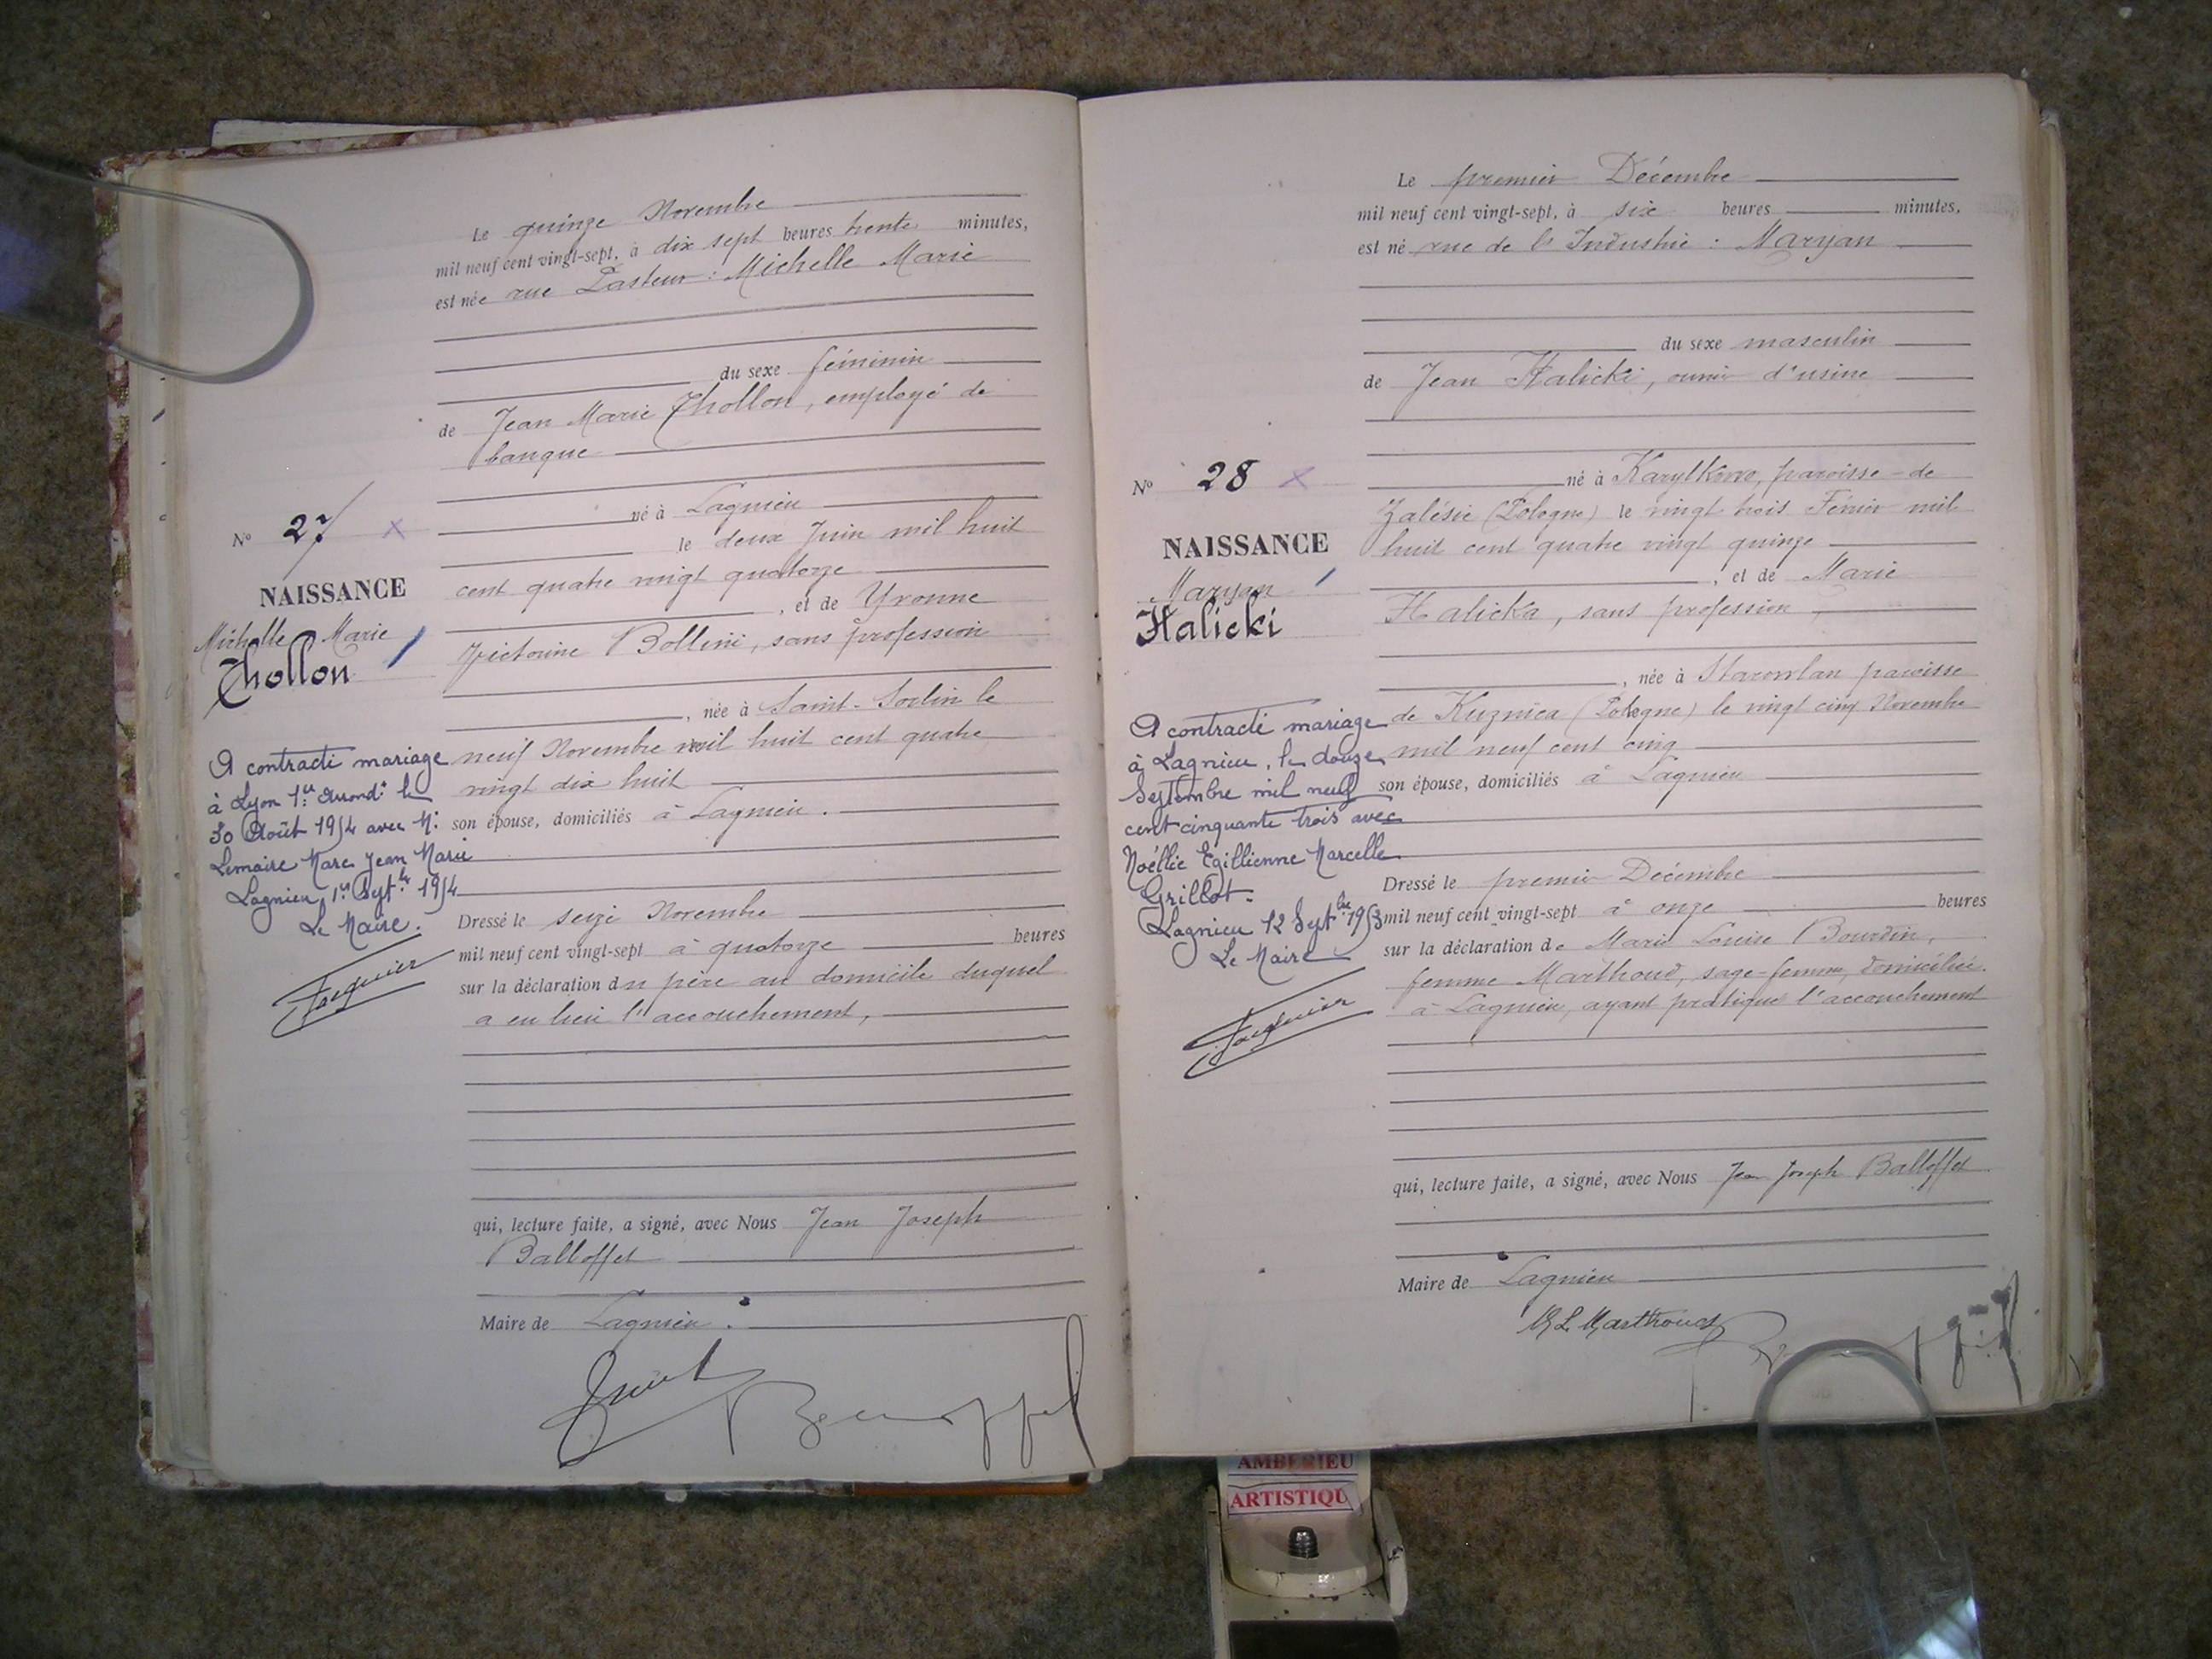 Le quinze Novembre
mil neuf cent vingt-sept, à dix sept heures trente minutes,
est née rue Pasteur : Michelle Marie
du sexe féminin
de Jean Marie Thollon, employé de
banque
né à Lagnieu
le deux Juin mil huit
cent quatre vingt quatorze
, et de Yvonne
Victorine Bollini, sans profession
, née à Saint-Sorlin le
neuf Novembre mil huit cent quatre
vingt dix huit
son épouse, domiciliés à Lagnieu.
Dressé le seize Novembre
mil neuf cent vingt-sept à quatorze heures
sur la déclaration du père au domicile duquel
a eu lieu l'accouchement,
qui, lecture faite, a signé, avec Nous Jean Joseph
Balloffet
Maire de Lagnieu.
No 27
NAISSANCE
Michelle Marie
Thollon
A contracté mariage
à Lyon 1er Arrondt le
30 Août 1954 avec M.
Lemaire Marc Jean Marie
Lagnieu 1er Septbre 1954
Le Maire.
Le premier Décembre
mil neuf cent vingt-sept, à six heures minutes,
est né rue de l'Industrie : Maryan
du sexe masculin
de Jean Halicki, ouvrier d'usine
né à paroisse de
Zalésie (Pologne) le vingt trois Février mil
huit cent quatre vingt quinze
, et de Marie
Halicka, sans profession
, née à paroisse
de Kuznica (Pologne) le vingt cinq Novembre
mil neuf cent cinq
son épouse, domiciliés à Lagnieu
Dressé le premier Décembre
mil neuf cent vingt-sept à onze heures
sur la déclaration de Marie Louise Bourdin,
femme Marthoud, sage-femme, domiciliée
à Lagnieu, ayant pratiqué l'accouchement
qui, lecture faite, a signé, avec Nous Jean Joseph Balloffet
Maire de Lagnieu
M L Marthoud
No 28
NAISSANCE
Maryan
Halicki
A contracté mariage
à Lagnieu, le douze
Septembre mil neuf
cent cinquante trois avec
Noéllie Marcelle
Grillot.
Lagnieu 12 Septbre 1953
Le Maire
AMBERIEU
ARTISTIQU